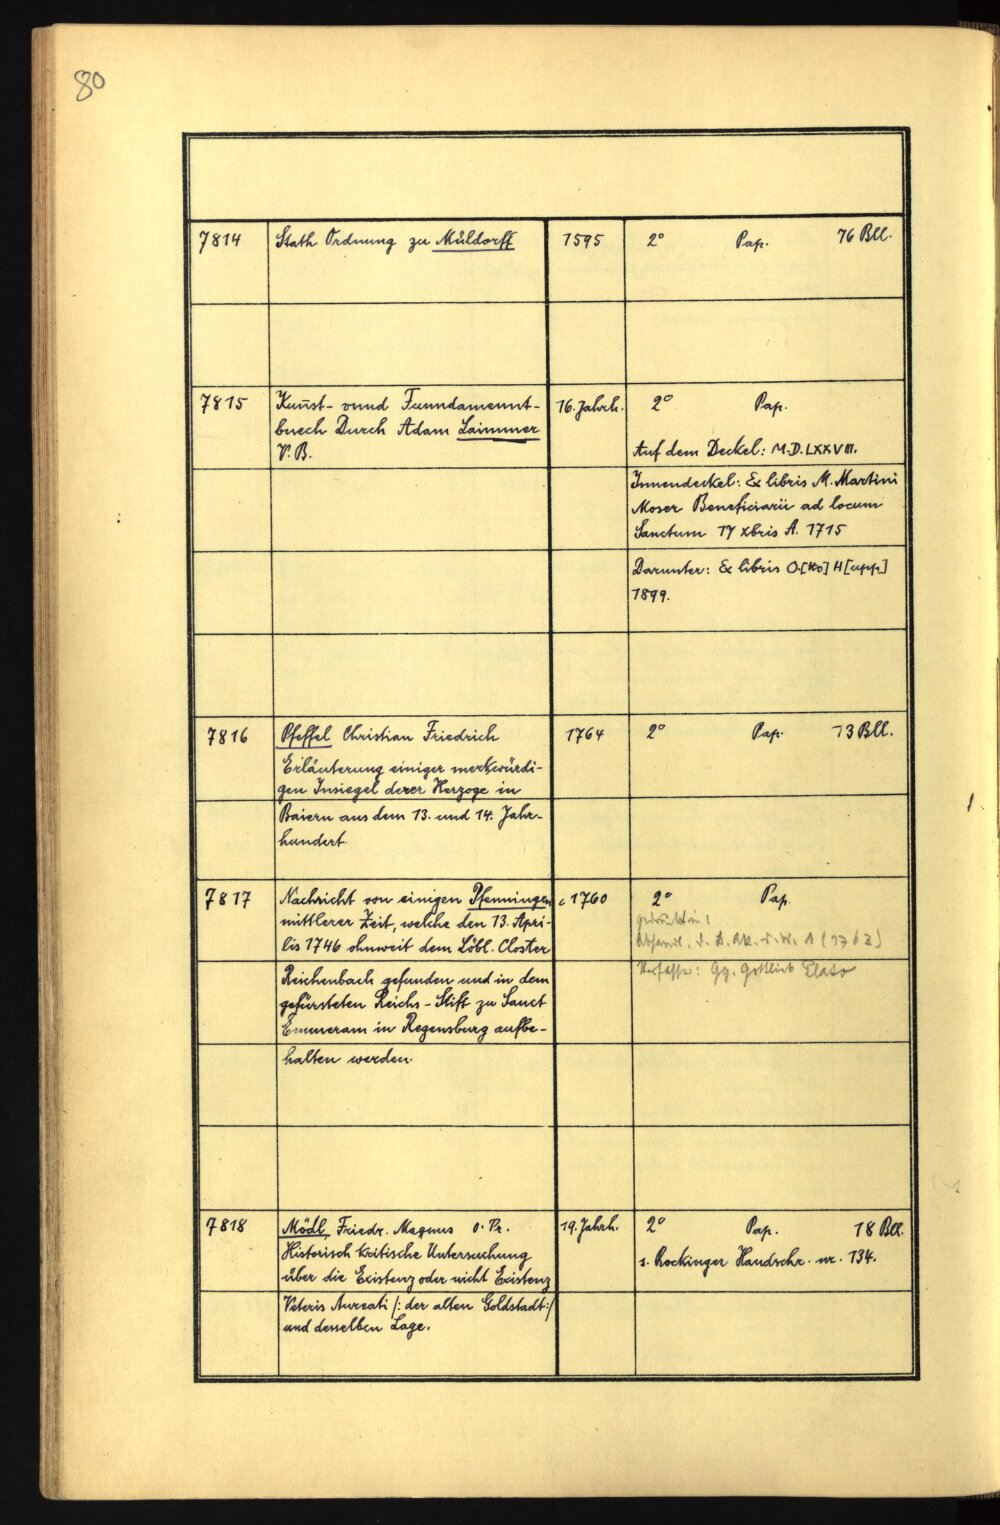 80
7814 Stath Ordnung zu Müldorff 1595 2° Pap. 76 Bll.
7815 Kunst- vnnd Funndamennt- 16. Jahrh. 2° Pap.
buech Durch Adam Laimmer
V. B. Auf dem Deckel: M.D.LXXVIII.
Innendeckel: Ex libris M. Martini
Moser Beneficiarii ad locum
Sanctum 17 xbris A. 1715
Darunter: Ex libris O.[tto] H[upp]
1899.
7816 Pfeffel Christian Friedrich 1764 2° Pap. 13 Bll.
Erläuterung einiger merkwürdi-
gen Insiegel derer Herzoge in
Baiern aus dem 13. und 14. Jahr-
hundert.
7817 Nachricht von einigen Pfenningen c 1760 2° Pap.
mittlerer Zeit, welche den 13. Apri- gedruckt in:
lis 1746 ohnweit dem Löbl. Closter Abhandl. d. b. Ak. d. W. 1 (1763)
Reichenbach gefunden und in dem Verfasser: Gg. Gottlieb Plato
gefürsteten Reichs-Stift zu Sanct
Emmeram in Regensburg aufbe-
halten werden.
7818 Mödl, Friedr. Magnus o. Pr. 19. Jahrh. 2° Pap. 18 Bll.
Historisch kritische Untersuchung s. Rockinger Handschr. nr. 134.
über die Existenz oder nicht Existenz
Veteris Aureati /: der alten Goldstadt :/
und desselben Lage.